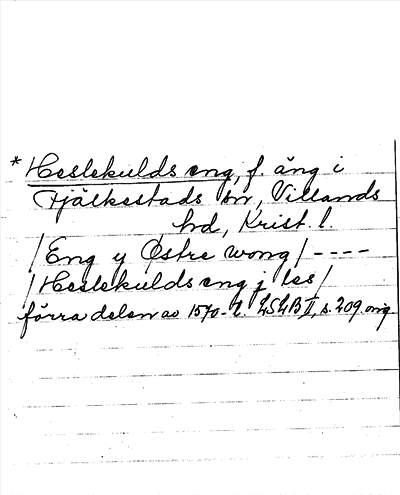 * Heslekulds eng, f. äng i
Fjälkestads sn, Villands
hd, Krist. l.
/Eng y Østre wong/ ----
/Heslekulds eng j les/
förra delen av 1570-t. LSLB II, s. 209 orig.